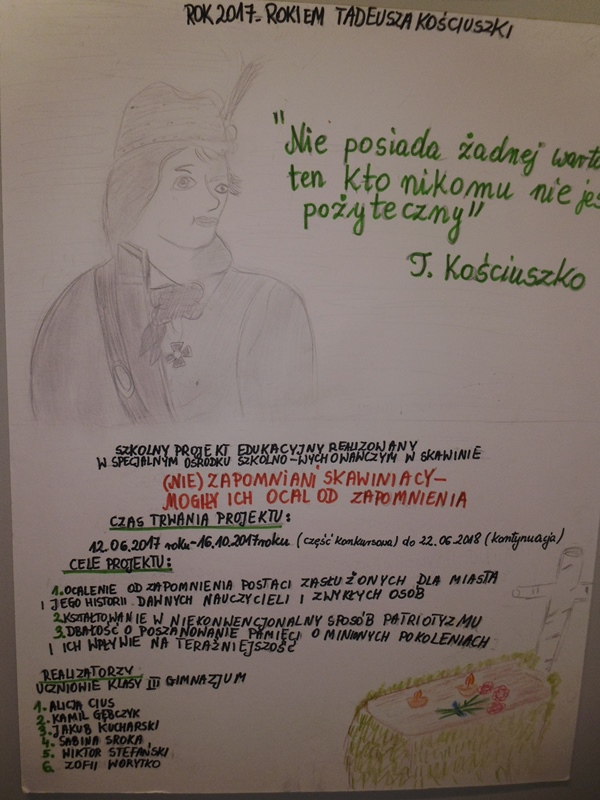 ROK 2017- ROKIEM TADEUSZA KOŚCIUSZKI
"Nie posiada żadnej warto
ten kto nikomu nie jes
pożyteczny"
T. Kościuszko
SZKOLNY PROJEKT EDUKACYJNY REALIZOWANY
W SPECJALNYM OŚRODKU SZKOLNO-WYCHOWAWCZYM W SKAWINIE
(NIE) ZAPOMNIANI SKAWINIACY-
MOGIŁY ICH OCAL OD ZAPOMNIENIA
CZAS TRWANIA PROJEKTU:
12.06.2017 roku-16.10.2017roku (część konkursowa) do 22.06.2018 (kontynuacja)
CELE PROJEKTU:
1.OCALENIE OD ZAPOMNIENIA POSTACI ZASŁUŻONYCH DLA MIASTA
I JEGO HISTORII DAWNYCH NAUCZYCIELI I ZWYKŁYCH OSÓB
2.KSZTAŁTOWANIE W NIEKONWENCJONALNY SPOSÓB PATRIOTYZMU
3.DBAŁOŚĆ O POSZANOWANIE PAMIĘCI O MINIONYCH POKOLENIACH
I ICH WPŁYWIE NA TERAŹNIEJSZOŚĆ
REALIZATORZY
UCZNIOWIE KLASY III GIMNAZJUM
1. ALICJA CIUS
2. KAMIL GĘBCZYK
3. JAKUB KUCHARSKI
4. SABINA SROKA
5. WIKTOR STEFAŃSKI
6. ZOFII WORYTKO